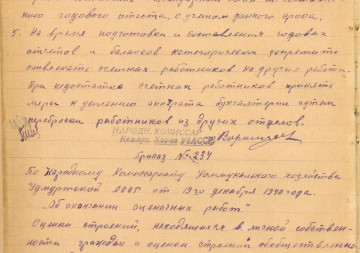 нию годового отчета, с учетом данного срока.
5. На время подготовки и составления годовых
отчетов и балансов категорически запретить
отвлекать счетных работников на другие работы.
При недостатке счетных работников принять
меры к усилению аппарата бухгалтерии путем
переброски работников из других отделов.
НАРОДН. КОМИССАР
Коммун. Хоз-ва УАССР
Приказ № 234
По Народному Комиссариату Коммунального хозяйства
Удмуртской АССР от 19го декабря 1940 года.
"Об окончании оценочных работ."
Оценка строений, находящихся в личной собствен-
ности граждан и оценка строений обобществленно